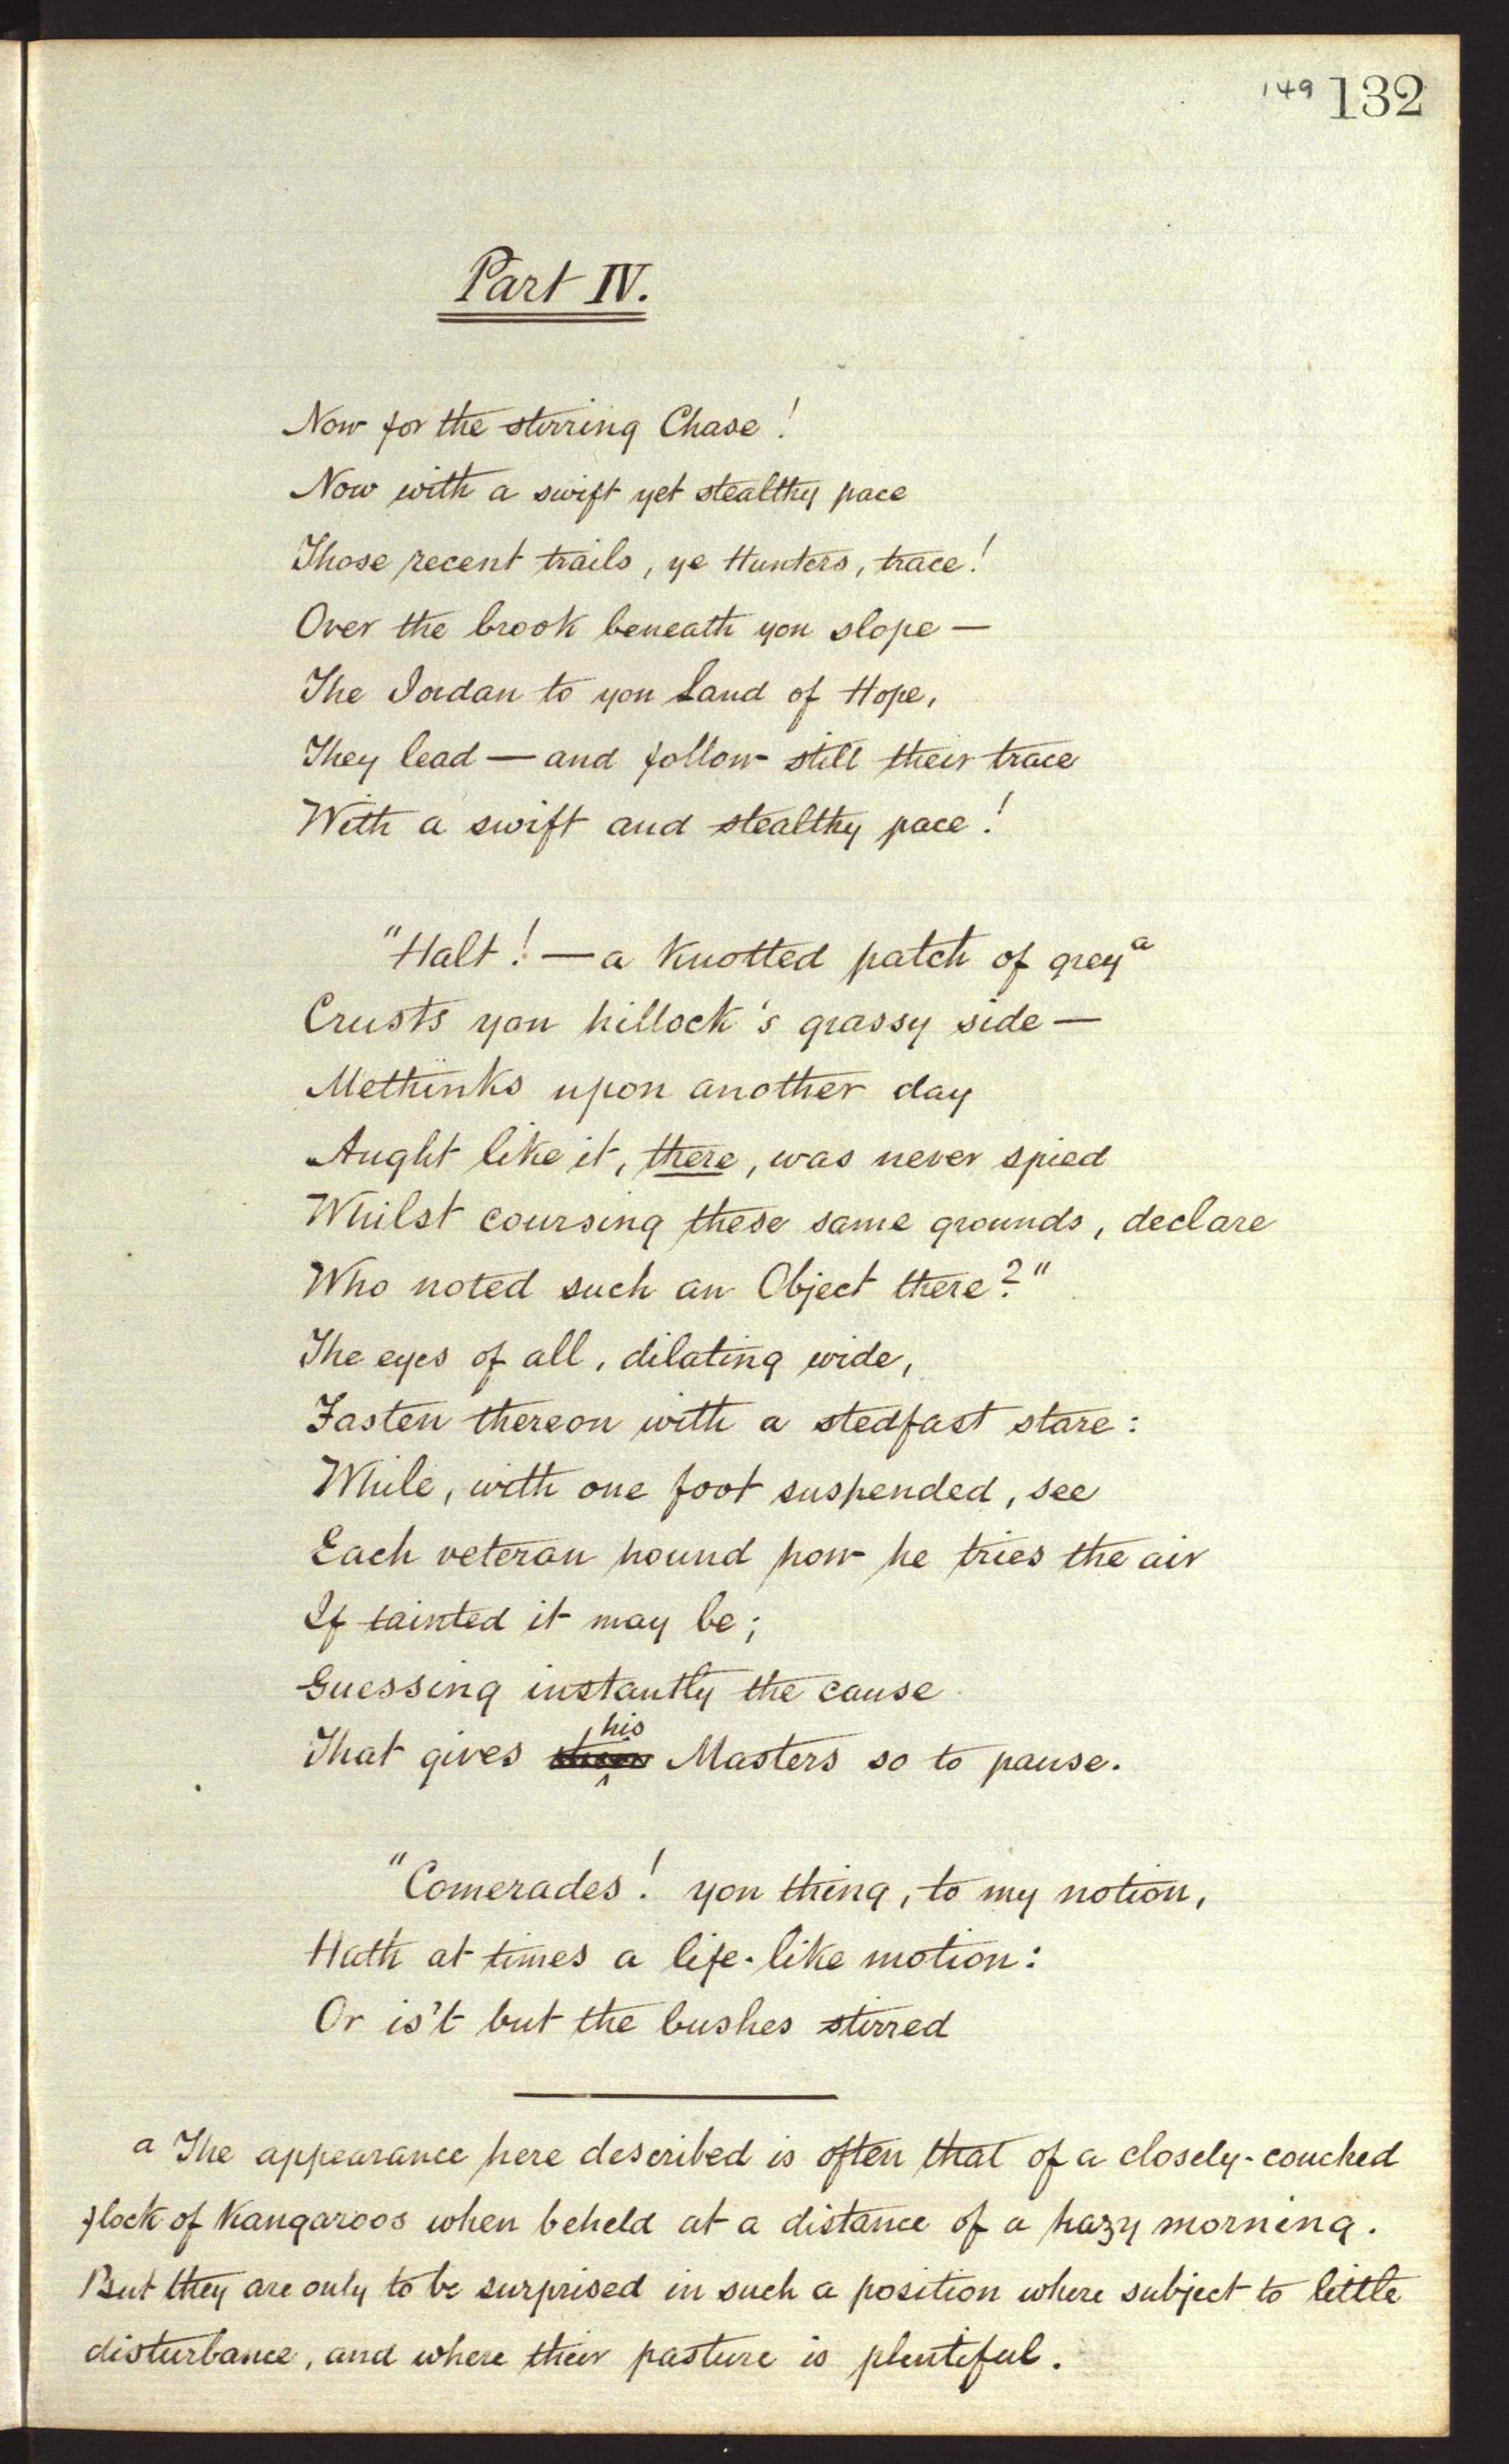 149 132
Part IV.
Now for the stirring Chase!
Now with a swift yet stealthy pace
Those recent trails, ye Hunters, trace!
Over the brook beneath yon slope —
The Jordan to yon Land of Hope,
They lead — and follow still their trace
With a swift and stealthy pace!
"Halt! — a knotted patch of grey a
Crusts yon hillock's grassy side —
Methinks upon another day
Aught like it, there, was never spied
Whilst coursing these same grounds, declare
Who noted such an Object there?"
The eyes of all, dilating wide,
Fasten thereon with a stedfast stare:
While, with one foot suspended, see
Each veteran hound how he tries the air
If tainted it may be;
Guessing instantly the cause
That gives his Masters so to pause.
"Comerades! yon thing, to my notion,
Hath at times a life-like motion:
Or is't but the bushes stirred
a The appearance here described is often that of a closely-couched
flock of Kangaroos when beheld at a distance of a hazy morning.
But they are only to be surprised in such a position where subject to little
disturbance, and where their pasture is plentiful.